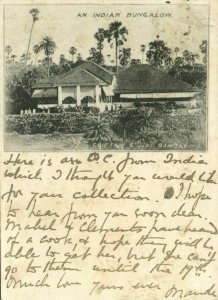 AN INDIAN BUNGALOW.
CLIFTON & Co. BOMBAY
Here is a P.C. from India
which I thought you would like
for your collection. I hope
to hear from you soon dear.
Mabel & Clements have heard
of a cook, & hope they will be
able to get her, but she can't
go to them until the 19th.
Much love yours ever. Maude